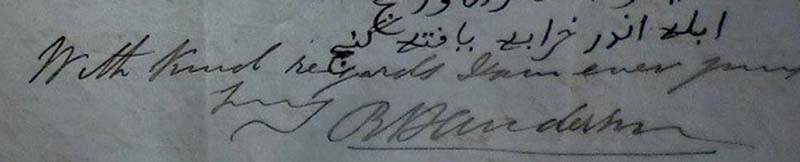 ابله اندر خرابه یافته گنج
With kind regards I am ever yours
truly
Anderson